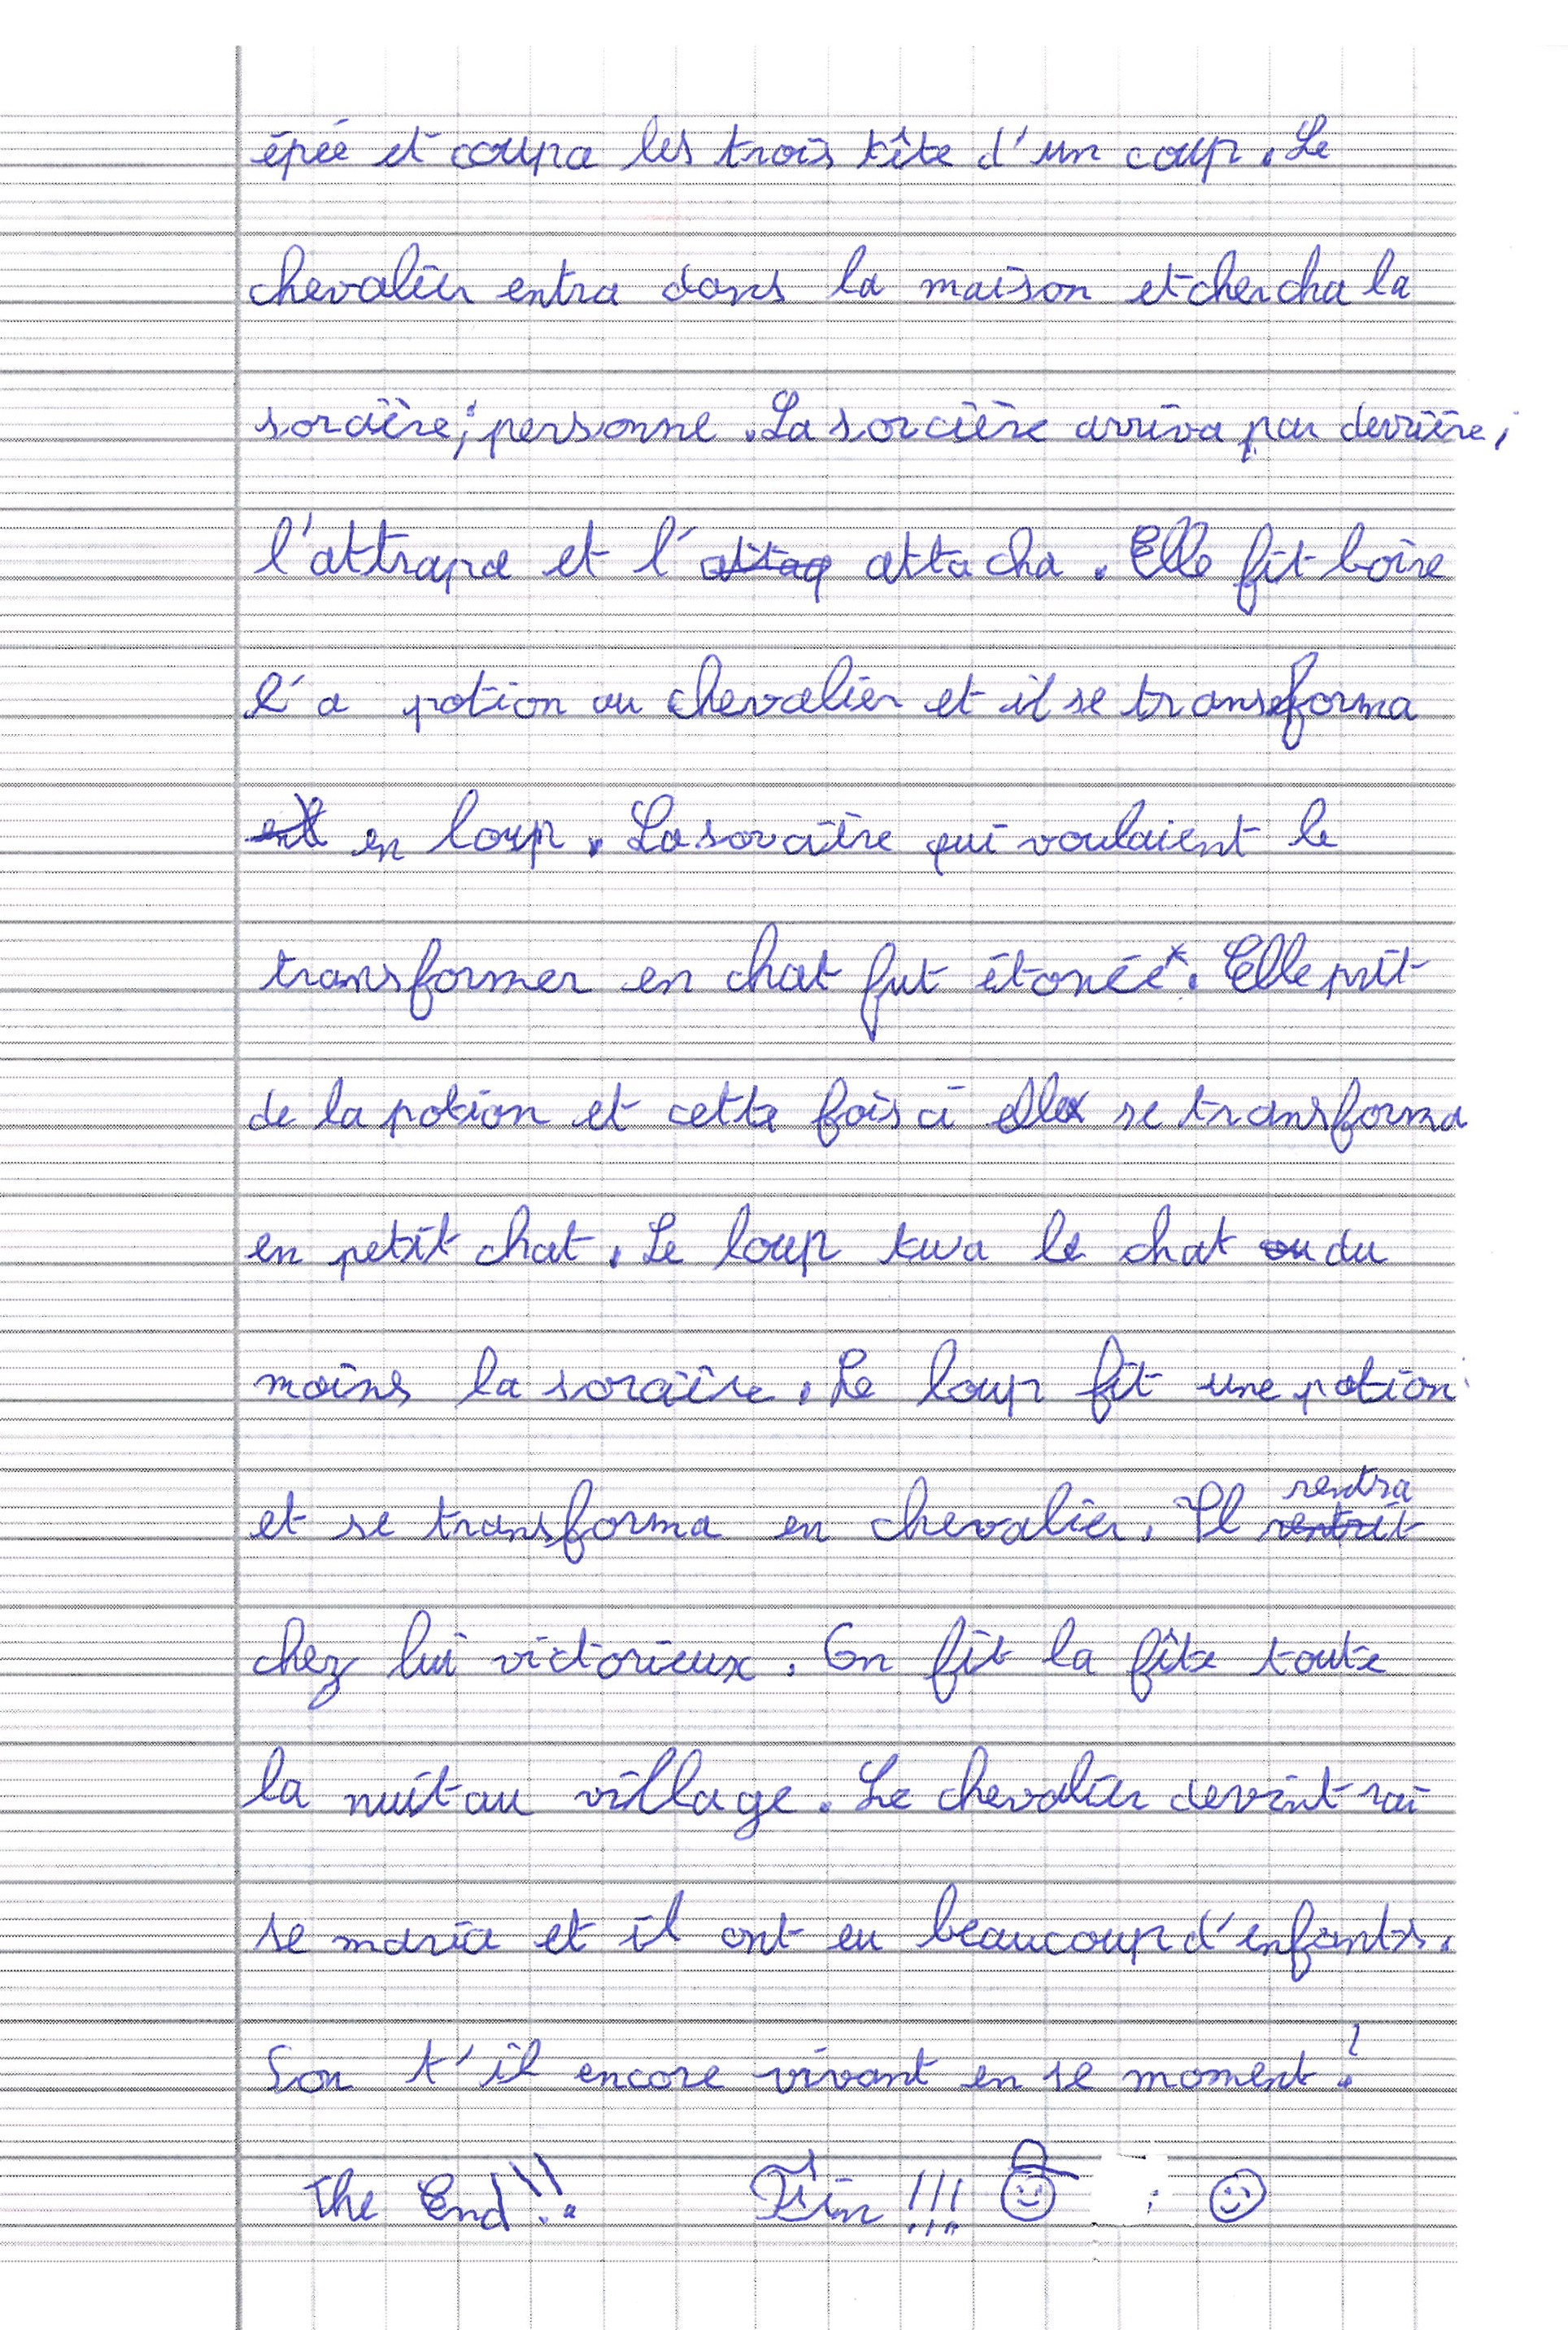 épée et coupa les trois tête d'un coup. Le
chevalier entra dans la maison et chercha la
sorcière ; personne. La sorcière arriva par derrière,
l'attrapa et l'attaq attacha. Elle fit boire
l'a potion au chevalier et il se transforma
en loup. La sorcière qui voulaient le
transformer en chat fut étonée. Elle prit
de la potion et cette fois ci elle se transforma
en petit chat. Le loup tua le chat ou du
moins la sorcière. Le loup fit une potion
et se transforma en chevalier. Il rentrit rentra
chez lui victorieux. On fit la fête toute
la nuit au village. Le chevalier devint roi
se maria et il ont eu beaucoup d'enfants.
Son t'il encore vivant en se moment ?
The End !! Fin !!!